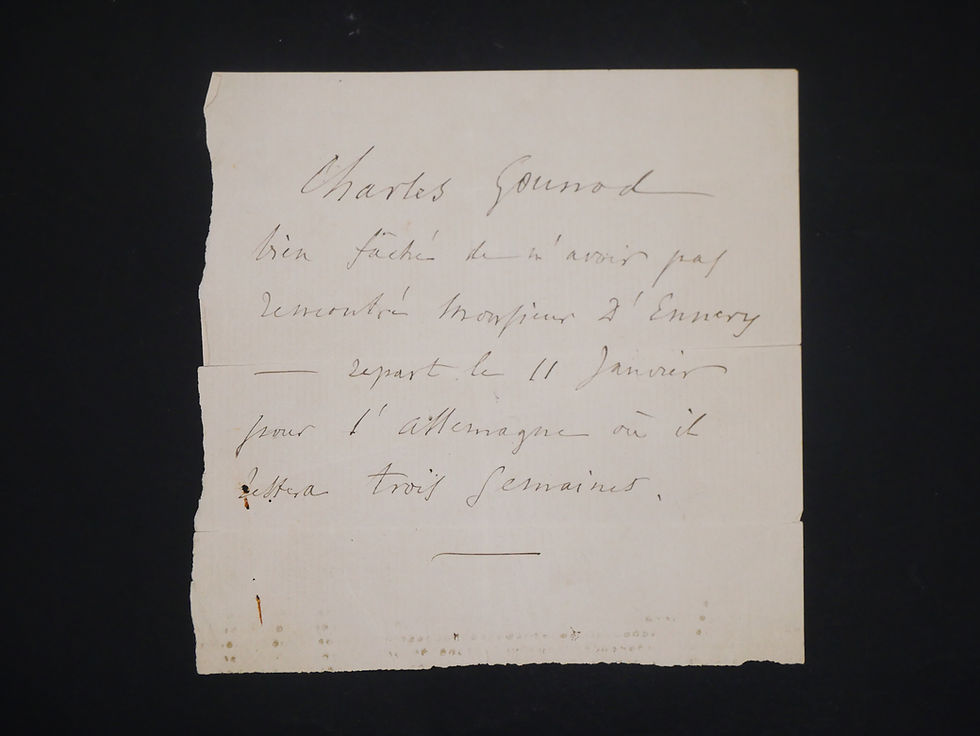 Charles Gounod
bien fâché de n'avoir pas
rencontré Monsieur D'Ennery
— repart le 11 Janvier
pour l'Allemagne où il
restera trois Semaines.